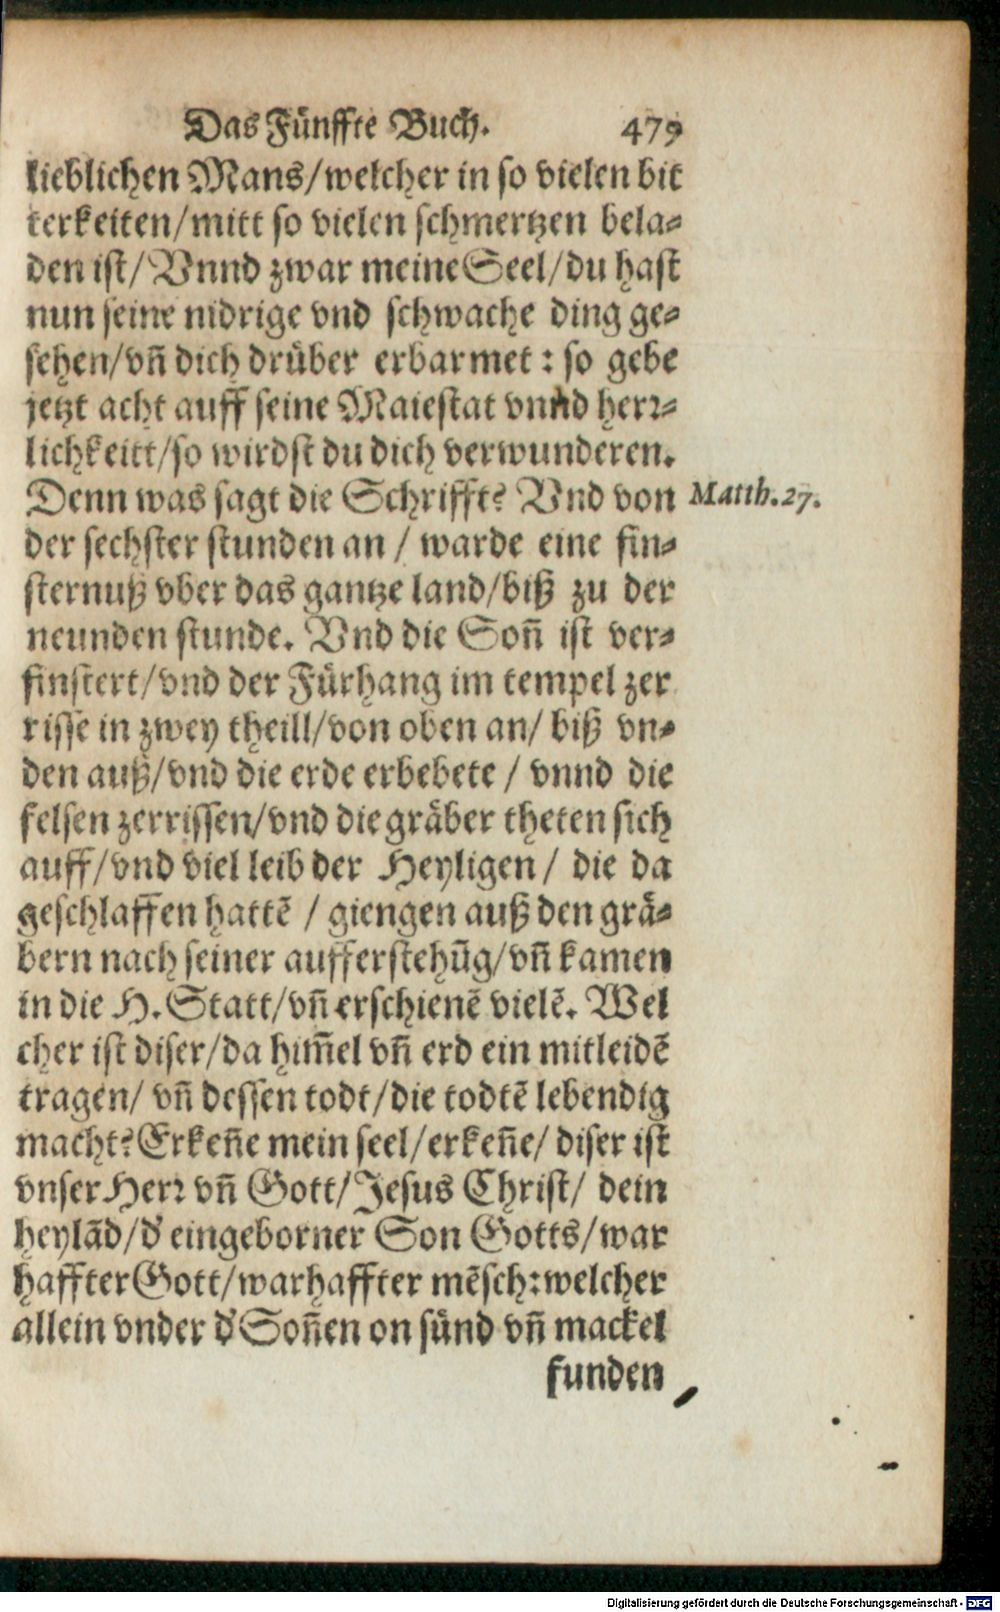 Das Fünffte Buch. 479
lieblichen Mans/welcher in so vielen bit
terkeiten/mitt so vielen schmertzen bela-
den ist/Vnnd zwar meine Seel/du hast
nun seine nidrige vnd schwache ding ge-
sehen/vñ dich drüber erbarmet: so gebe
jetzt acht auff seine Maiestat vnnd herr-
lichkeitt/so wirdst du dich verwunderen.
Denn was sagt die Schrifft? Vnd von Matth.27.
der sechster stunden an / warde eine fin-
sternuß vber das gantze land/biß zu der
neunden stunde. Vnd die Soñ ist ver-
finstert/vnd der Fürhang im tempel zer
risse in zwey theill/von oben an/ biß vn-
den auß/vnd die erde erbebete / vnnd die
felsen zerrissen/vnd die gräber theten sich
auff/vnd viel leib der Heyligen/ die da
geschlaffen hattẽ / giengen auß den grä-
bern nach seiner aufferstehũg/vñ kamen
in die H. Statt/vñ erschienẽ vielẽ. Wel
cher ist diser/da him̃el vñ erd ein mitleidẽ
tragen/ vñ dessen todt/die todtẽ lebendig
macht? Erkeñe mein seel/erkeñe/ diser ist
vnser Herr vñ Gott/Jesus Christ/ dein
heylãd/d' eingeborner Son Gotts/war
haffter Gott/warhaffter mẽsch: welcher
allein vnder d' Soñen on sünd vñ mackel
funden
Digitalisierung gefördert durch die Deutsche Forschungsgemeinschaft - DFG